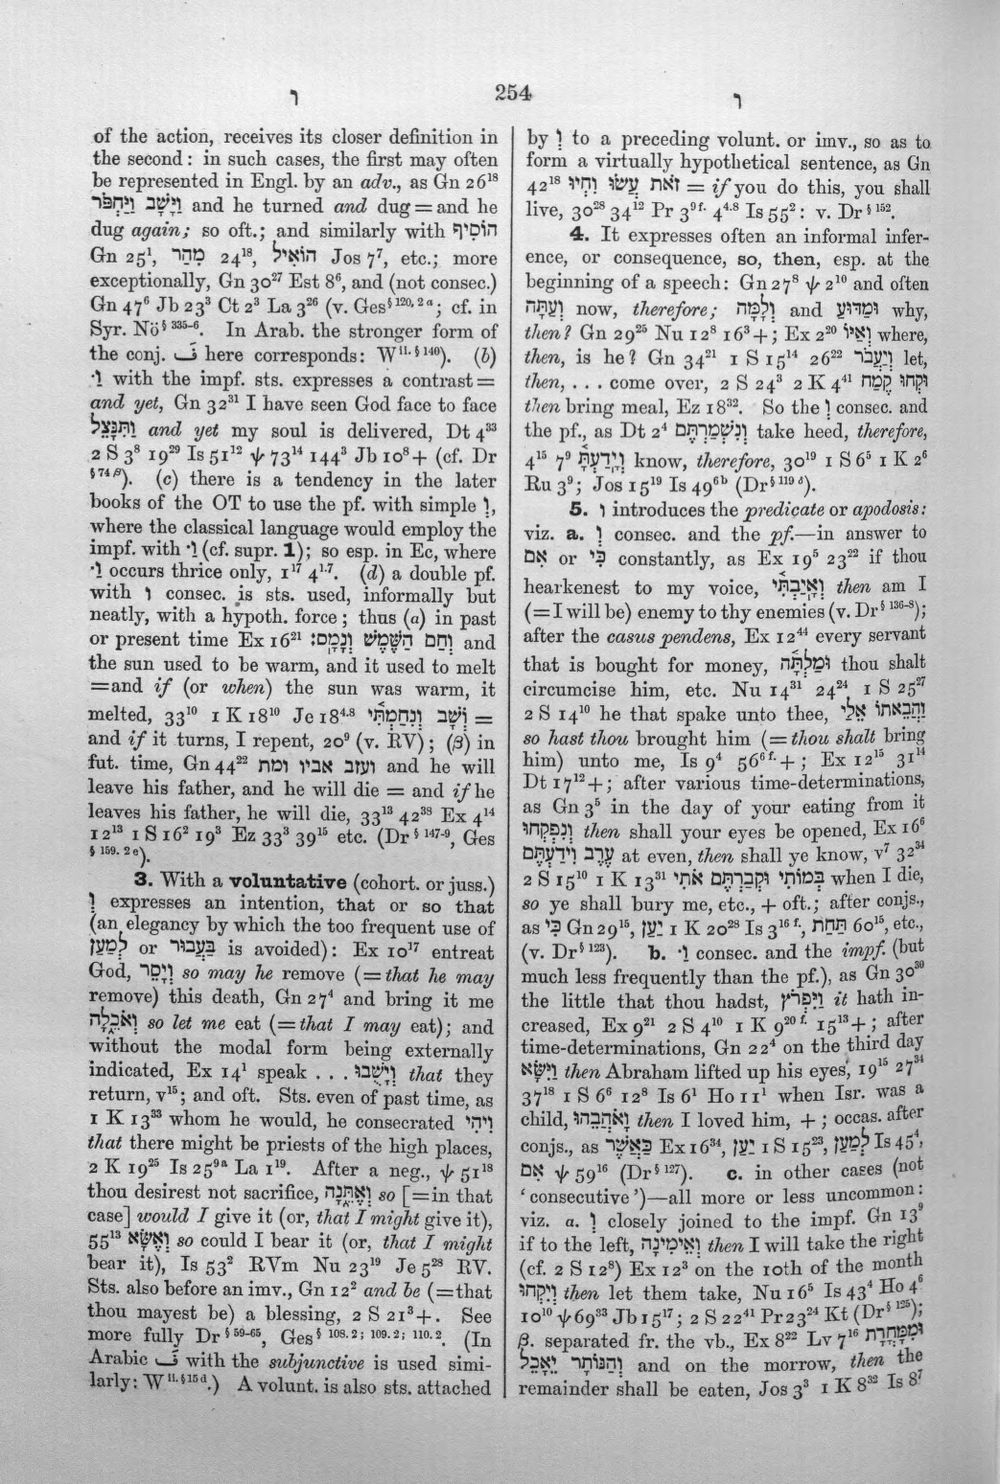 ו 254 ו
of the action, receives its closer definition in
the second: in such cases, the first may often
be represented in Engl. by an adv., as Gn 26¹⁸
וַיָּשָׁב וַיַּחְפֹּר and he turned and dug = and he
dug again; so oft.; and similarly with הוֹסִיף
Gn 25¹, מִהַר 24¹⁸, הוֹאִיל Jos 7⁷, etc.; more
exceptionally, Gn 30²⁷ Est 8⁶, and (not consec.)
Gn 47⁶ Jb 23³ Ct 2³ La 3²⁶ (v. Ges§ 120, 2 a; cf. in
Syr. Nö§ 335–6. In Arab. the stronger form of
the conj. فَ here corresponds: W ii. § 140). (b)
·וַ with the impf. sts. expresses a contrast =
and yet, Gn 32³¹ I have seen God face to face
וַתִּנָּצֵל and yet my soul is delivered, Dt 4³³
2 S 3⁸ 19²⁹ Is 51¹² ψ 73¹⁴ 144³ Jb 10⁸ + (cf. Dr
§ 74 β). (c) there is a tendency in the later
books of the OT to use the pf. with simple וְ,
where the classical language would employ the
impf. with ·וַ (cf. supr. 1); so esp. in Ec, where
·וַ occurs thrice only, 1¹⁷ 4¹·⁷. (d) a double pf.
with ו consec. is sts. used, informally but
neatly, with a hypoth. force; thus (a) in past
or present time Ex 16²¹ וְחַם הַשֶּׁמֶשׁ וְנָמָֽס׃ and
the sun used to be warm, and it used to melt
= and if (or when) the sun was warm, it
melted, 33¹⁰ 1 K 18¹⁰ Je 18⁴·⁸ וְשָׁב וְנִחַמְתִּי =
and if it turns, I repent, 20⁹ (v. RV); (β) in
fut. time, Gn 44²² ועזב אביו ומת and he will
leave his father, and he will die = and if he
leaves his father, he will die, 33¹³ 42³⁸ Ex 4¹⁴
12¹³ 1 S 16² 19³ Ez 33³ 39¹⁵ etc. (Dr § 147–9, Ges
§ 159. 2 e).
3. With a voluntative (cohort. or juss.)
וְ expresses an intention, that or so that
(an elegancy by which the too frequent use of
לְמַעַן or בַּעֲבוּר is avoided): Ex 10¹⁷ entreat
God, וְיָסֵר so may he remove (= that he may
remove) this death, Gn 27⁴ and bring it me
וְאֹכֵלָה so let me eat (= that I may eat); and
without the modal form being externally
indicated, Ex 14¹ speak . . . וְיָשֻׁבוּ that they
return, v¹⁵; and oft. Sts. even of past time, as
1 K 13³³ whom he would, he consecrated וִיהִי
that there might be priests of the high places,
2 K 19²⁵ Is 25⁹ᵃ La 1¹⁹. After a neg., ψ 51¹⁸
thou desirest not sacrifice, וְאֶתֵּנָה so [= in that
case] would I give it (or, that I might give it),
55¹³ וְאֶשָּׂא so could I bear it (or, that I might
bear it), Is 53² RVm Nu 23¹⁹ Je 5²⁸ RV.
Sts. also before an imv., Gn 12² and be (= that
thou mayest be) a blessing, 2 S 21³ +. See
more fully Dr § 59–65, Ges§ 108. 2; 109. 2; 110. 2. (In
Arabic فَ with the subjunctive is used simi-
larly: W ii. § 15 d.) A volunt. is also sts. attached
by וְ to a preceding volunt. or imv., so as to
form a virtually hypothetical sentence, as Gn
42¹⁸ זֹאת עֲשׂוּ וִחְיוּ = if you do this, you shall
live, 30²⁸ 34¹² Pr 3⁹ᶠ· 4⁴·⁸ Is 55²: v. Dr § 152.
4. It expresses often an informal infer-
ence, or consequence, so, then, esp. at the
beginning of a speech: Gn 27⁸ ψ 2¹⁰ and often
וְעַתָּה now, therefore; וְלָמָּה and וּמַדּוּעַ why,
then? Gn 29²⁵ Nu 12⁸ 16³ +; Ex 2²⁰ וְאַיּוֹ where,
then, is he? Gn 34²¹ 1 S 15¹⁴ 26²² וְיַעֲבֹר let,
then, . . . come over, 2 S 24³ 2 K 4⁴¹ וּקְחוּ קֶמַח
then bring meal, Ez 18³². So the וְ consec. and
the pf., as Dt 2⁴ וְנִשְׁמַרְתֶּם take heed, therefore,
4¹⁵ 7⁹ וְיָדַעְתָּ know, therefore, 30¹⁹ 1 S 6⁵ 1 K 2⁶
Ru 3⁹; Jos 15¹⁹ Is 49⁶ᵇ (Dr§ 119 δ).
5. ו introduces the predicate or apodosis:
viz. a. וְ consec. and the pf.—in answer to
אִם or כִּי constantly, as Ex 19⁵ 23²² if thou
hearkenest to my voice, וְאָיַבְתִּי then am I
(= I will be) enemy to thy enemies (v. Dr§ 136–8);
after the casus pendens, Ex 12⁴⁴ every servant
that is bought for money, וּמַלְתָּה thou shalt
circumcise him, etc. Nu 14³¹ 24²⁴ 1 S 25²⁷
2 S 14¹⁰ he that spake unto thee, וַהֲבֵאתוֹ אֵלַי
so hast thou brought him (= thou shalt bring
him) unto me, Is 9⁴ 56⁶ᶠ· +; Ex 12¹⁵ 31¹⁴
Dt 17¹² +; after various time-determinations,
as Gn 3⁵ in the day of your eating from it
וְנִפְקְחוּ then shall your eyes be opened, Ex 16⁶
עֶרֶב וִידַעְתֶּם at even, then shall ye know, v⁷ 32³⁴
2 S 15¹⁰ 1 K 13³¹ בְּמוֹתִי וּקְבַרְתֶּם אֹתִי when I die,
so ye shall bury me, etc., + oft.; after conjs.,
as כִּי Gn 29¹⁵, יַעַן 1 K 20²⁸ Is 3¹⁶ ᶠ·, תַּחַת 60¹⁵, etc.,
(v. Dr§ 123). b. ·וַ consec. and the impf. (but
much less frequently than the pf.), as Gn 30³⁰
the little that thou hadst, וַיִּפְרֹץ it hath in-
creased, Ex 9²¹ 2 S 4¹⁰ 1 K 9²⁰ ᶠ· 15¹³ +; after
time-determinations, Gn 22⁴ on the third day
וַיִּשָּׂא then Abraham lifted up his eyes, 19¹⁵ 27³⁴
37¹⁸ 1 S 6⁶ 12⁸ Is 6¹ Ho 11¹ when Isr. was a
child, וָאֹהֲבֵהוּ then I loved him, +; occas. after
conjs., as כַּאֲשֶׁר Ex 16³⁴, יַעַן 1 S 15²³, לְמַעַן Is 45⁴,
אִם ψ 59¹⁶ (Dr§ 127). c. in other cases (not
‘consecutive’)—all more or less uncommon:
viz. a. וְ closely joined to the impf. Gn 13⁹
if to the left, וְאֵימִינָה then I will take the right
(cf. 2 S 12⁸) Ex 12³ on the 10th of the month
וְיִקְחוּ then let them take, Nu 16⁵ Is 43⁴ Ho 4⁶
10¹⁰ ψ 69³³ Jb 15¹⁷; 2 S 22⁴¹ Pr 23²⁴ Kt (Dr§ 125);
β. separated fr. the vb., Ex 8²² Lv 7¹⁶ וּמִמָּחֳרָת
וְהַנּוֹתָר יֵאָכֵל and on the morrow, then the
remainder shall be eaten, Jos 3³ 1 K 8³² Is 8⁷